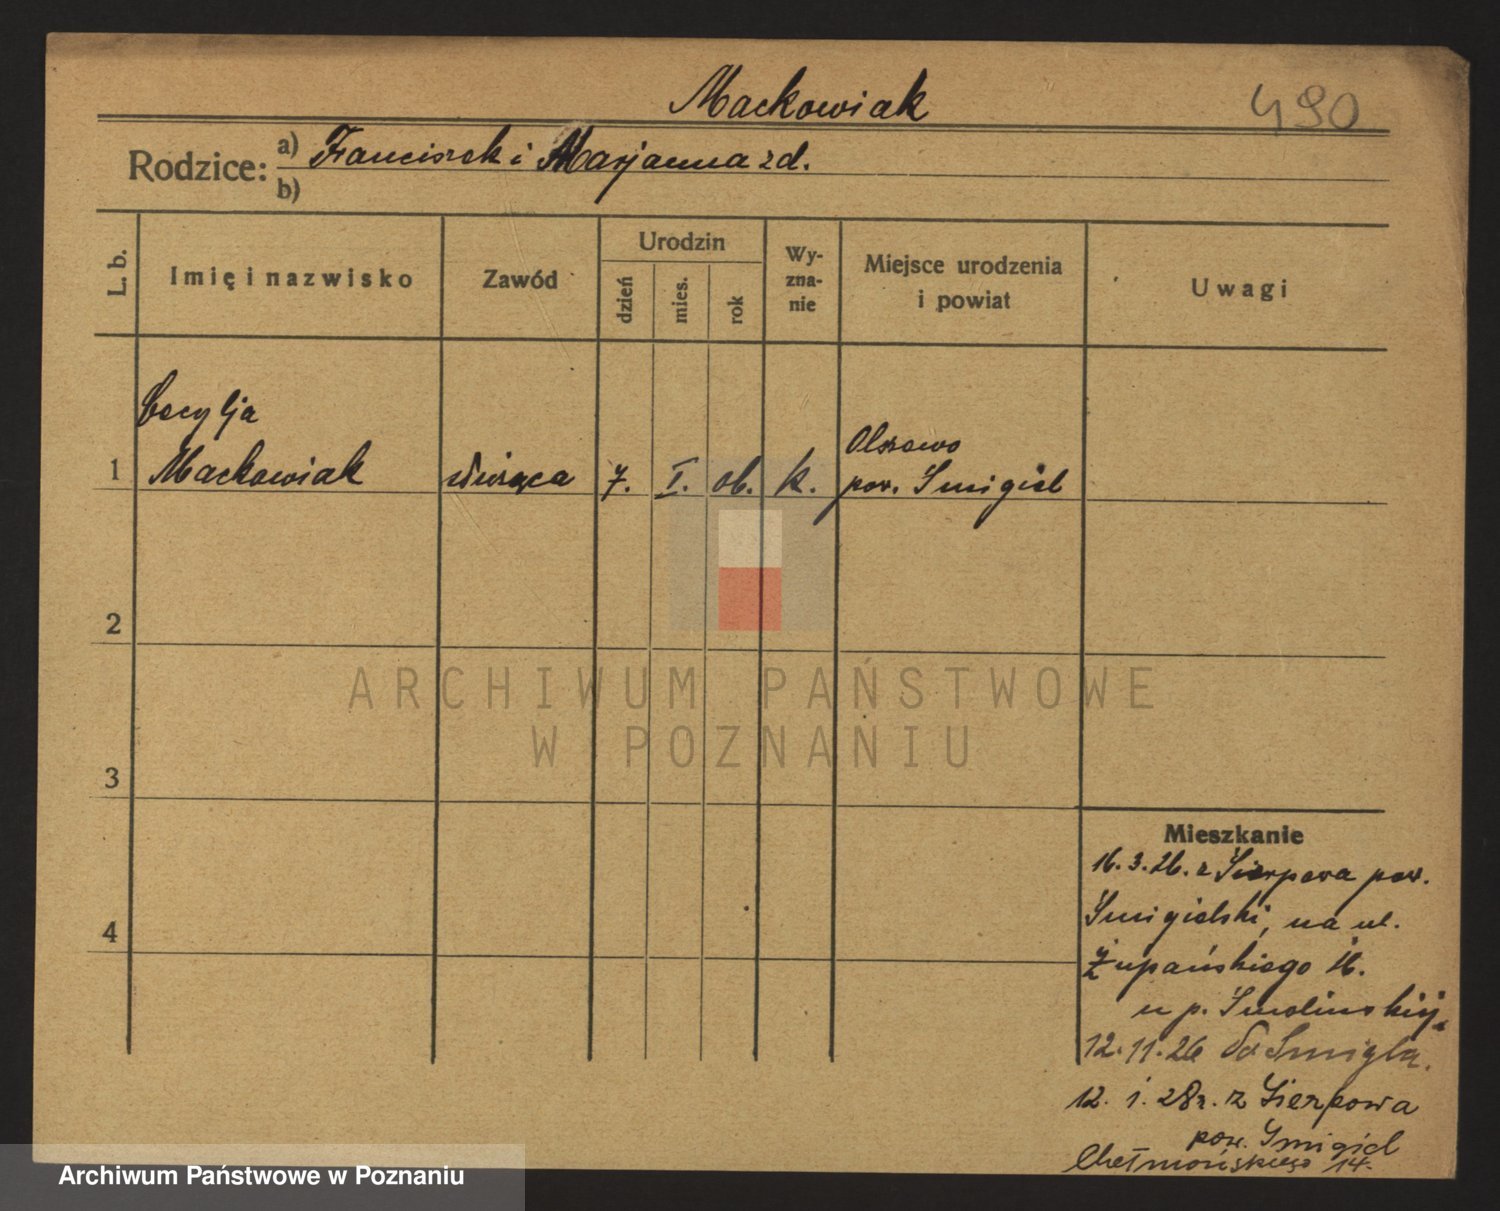 Mackowiak
490
Rodzice:
a) Franciszek i Marjanna zd.
b)
L. b.
Imię i nazwisko
Zawód
Urodzin
dzień
mies.
rok
Wy-
zna-
nie
Miejsce urodzenia
i powiat
Uwagi
Cecylja
1 Mackowiak służąca 7. I. 06. k.
Olszewo
pow. Śmigiel
2
3
4
Mieszkanie
16.3.26. z Sierpowa pow.
Śmigielski, na ul.
Żupańskiego 16.
u p. Smolinskiej.
12.11.26 do Śmigla.
12. 1. 28r. z Sierpowa
pow. Śmigiel
Chełmońskiego 14.
ARCHIWUM PAŃSTWOWE
W POZNANIU
Archiwum Państwowe w Poznaniu